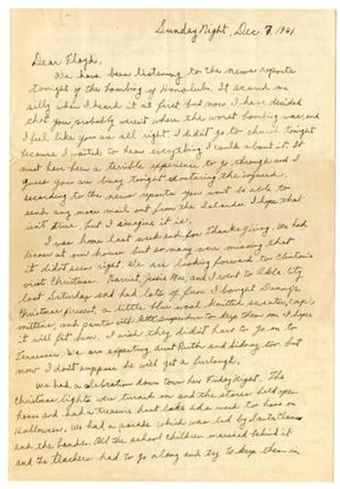 Sunday Night, Dec. 7, 1941
Dear Floyd,
We have been listening to the news reports
tonight of the bombing of Honolulu. It scared me
silly when I heard it at first, but now I have decided
that you probably weren't where the worst bombing was, and
I feel like you are all right. I didn't go to church tonight
because I wanted to hear everything I could about it. It
must have been a terrible experience to go through and I
guess you are busy tonight doctoring the injured.
according to the news reports you won't be able to
send any more mail out from the Islands. I hope that
isn't true, but I imagine it is.
I was home last week end for Thanksgiving. We had
dinner at our house but so many were missing that
it didn't seem right. We are looking forward to Clinton's
visit Christmas. Harriet, Jessie Mae, and I went to
last Saturday and had lots of fun. I bought Danny's
Christmas present, a little blue wool knitted sweater, cap,
mittens, and pants with little suspenders to keep them on. I hope
it will fit him. I wish they didn't have to go on to
Tennessee. We are expecting Aunt Ruth and Sidney too but
now I don't suppose he will get a furlough.
We had a celebration down town here Friday Night. The
Christmas lights were turned on and the stores held open
house and had a treasure hunt like Ada used to have on
Halloween. We had a parade which was led by Santa Claus
and the bands. All the school children marched behind it
and the teachers had to go along and try to keep them in